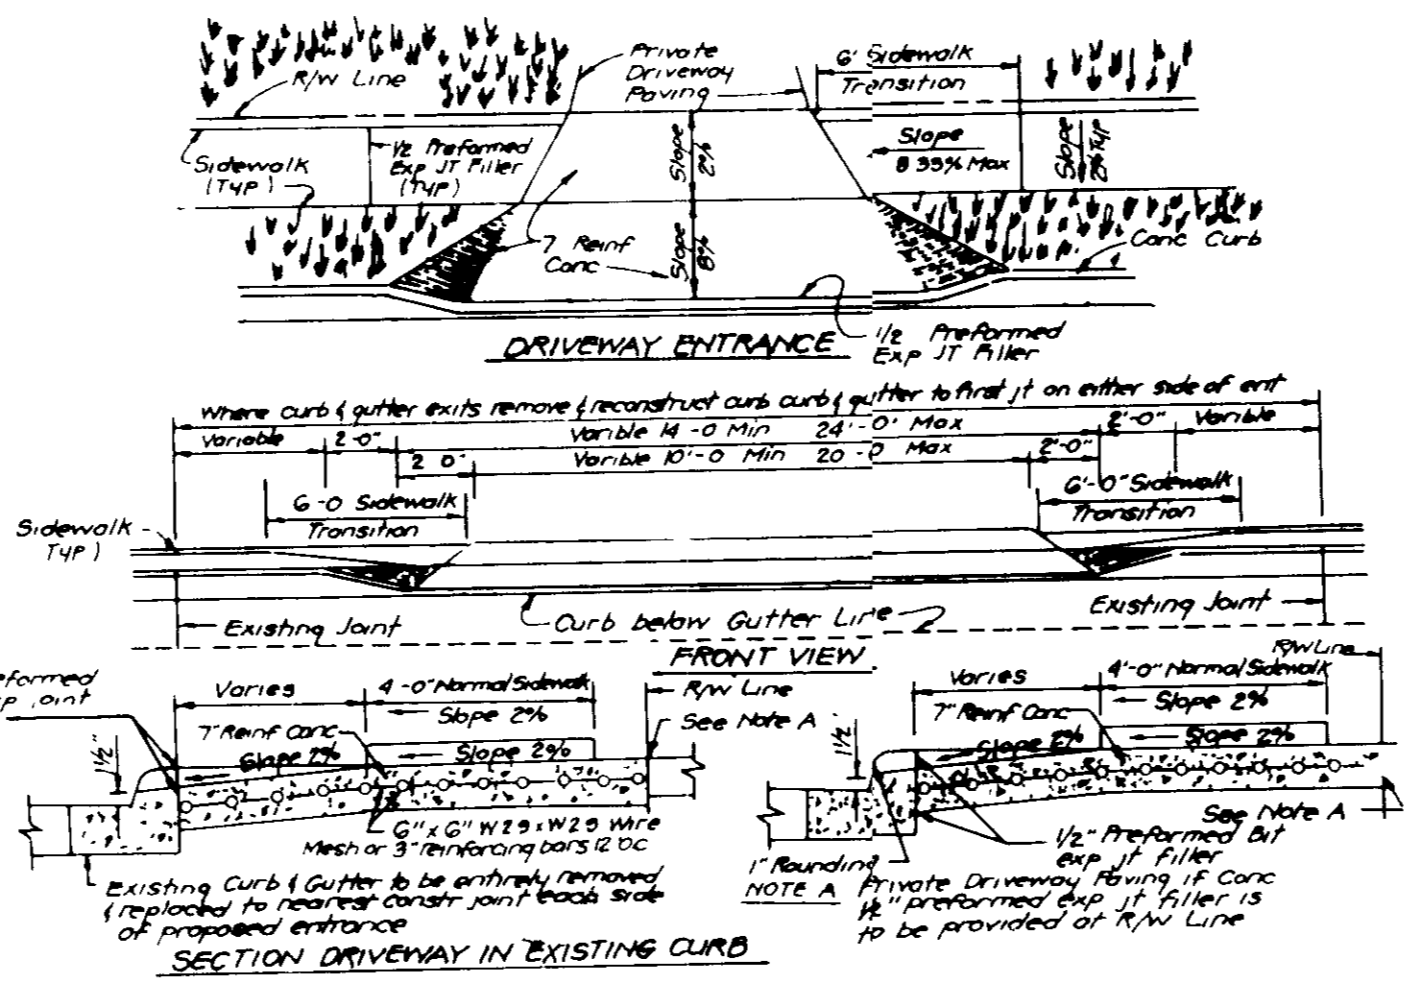 Private
Driveway
Paving
6' Sidewalk
Transition
R/W Line
Sidewalk
(Typ)
1/2 Preformed
Exp JT Filler
(Typ)
Slope
2%
Slope
8 33% Max
Slope
2% Typ
7 Reinf
Conc
Slope
8%
Conc Curb
DRIVEWAY ENTRANCE
1/2 Preformed
Exp JT Filler
Where curb & gutter exits remove & reconstruct curb curb & gutter to first jt on either side of ent
Variable
2'-0"
Varible 14 -0 Min 24'-0' Max
2'-0"
Varible
2 0"
Varible 10'-0 Min 20 -0 Max
2'-0"
6 -0 Sidewalk
Transition
6'-0" Sidewalk
Transition
Sidewalk
Typ)
Existing Joint
Curb below Gutter Line
Existing Joint
FRONT VIEW
eformed
p joint
Varies
4 -0" Normal Sidewalk
Slope 2%
R/W Line
See Note A
7" Reinf Conc
Slope 2%
Slope 2%
1 1/2"
6" x 6" W 2 9 x W 2 9 Wire
Mesh or 3" reinforcing bars 12" OC
Existing Curb & Gutter to be entirely removed
& replaced to nearest constr joint each side
of proposed entrance
SECTION DRIVEWAY IN EXISTING CURB
R/W Line
Varies
4'-0" Normal Sidewalk
Slope 2%
7" Reinf Conc
Slope 2%
Slope 2%
1 1/2'
See Note A
1/2" Preformed Bit
exp jt filler
1" Rounding
NOTE A Private Driveway Paving if Conc
1/2" preformed exp jt filler is
to be provided at R/W Line